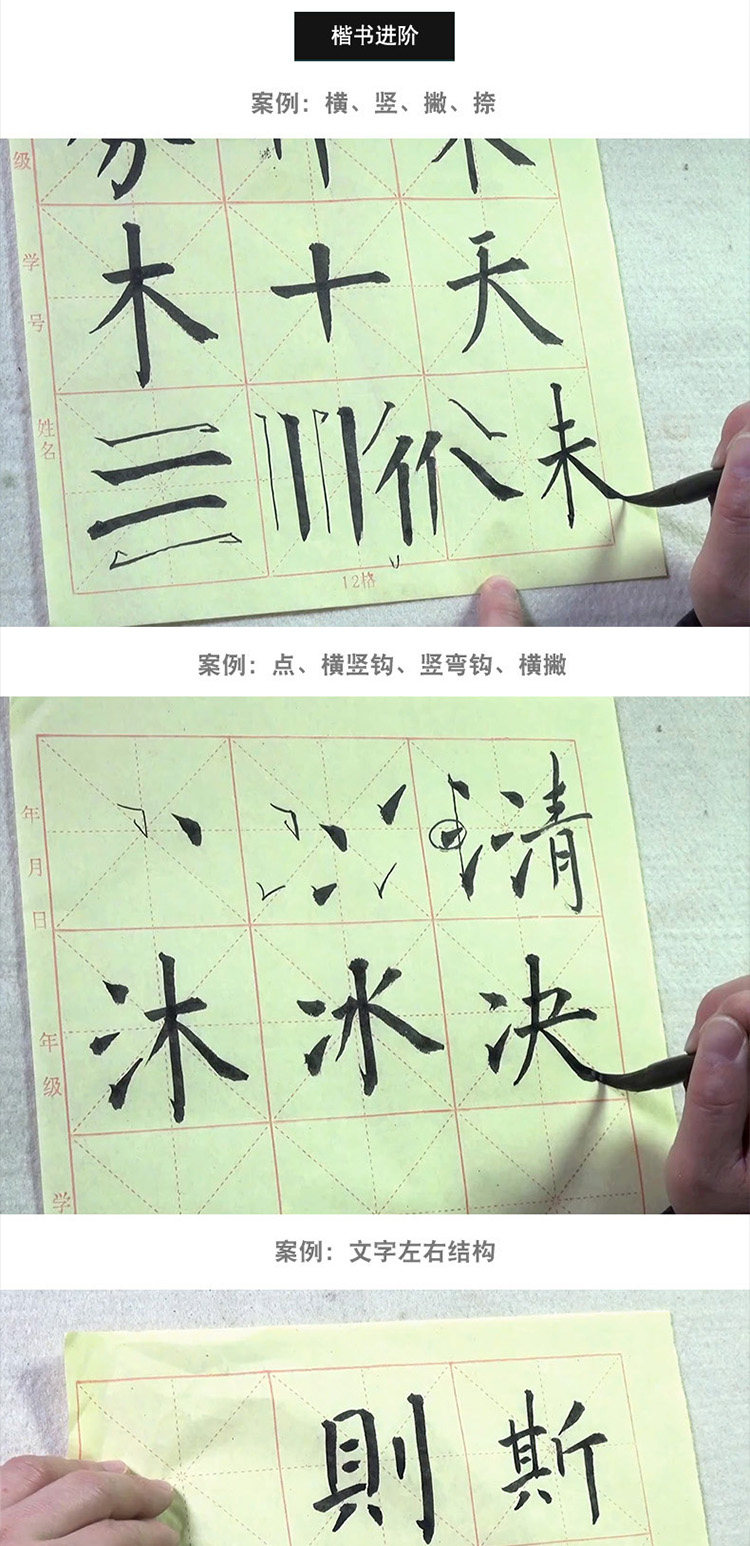 楷书进阶
案例：横、竖、撇、捺
级
学
号
姓名
木 十 天
未
12格
案例：点、横竖钩、竖弯钩、横撇
年
月
日
清
年
级
沐 冰 决
学
案例：文字左右结构
則 斯